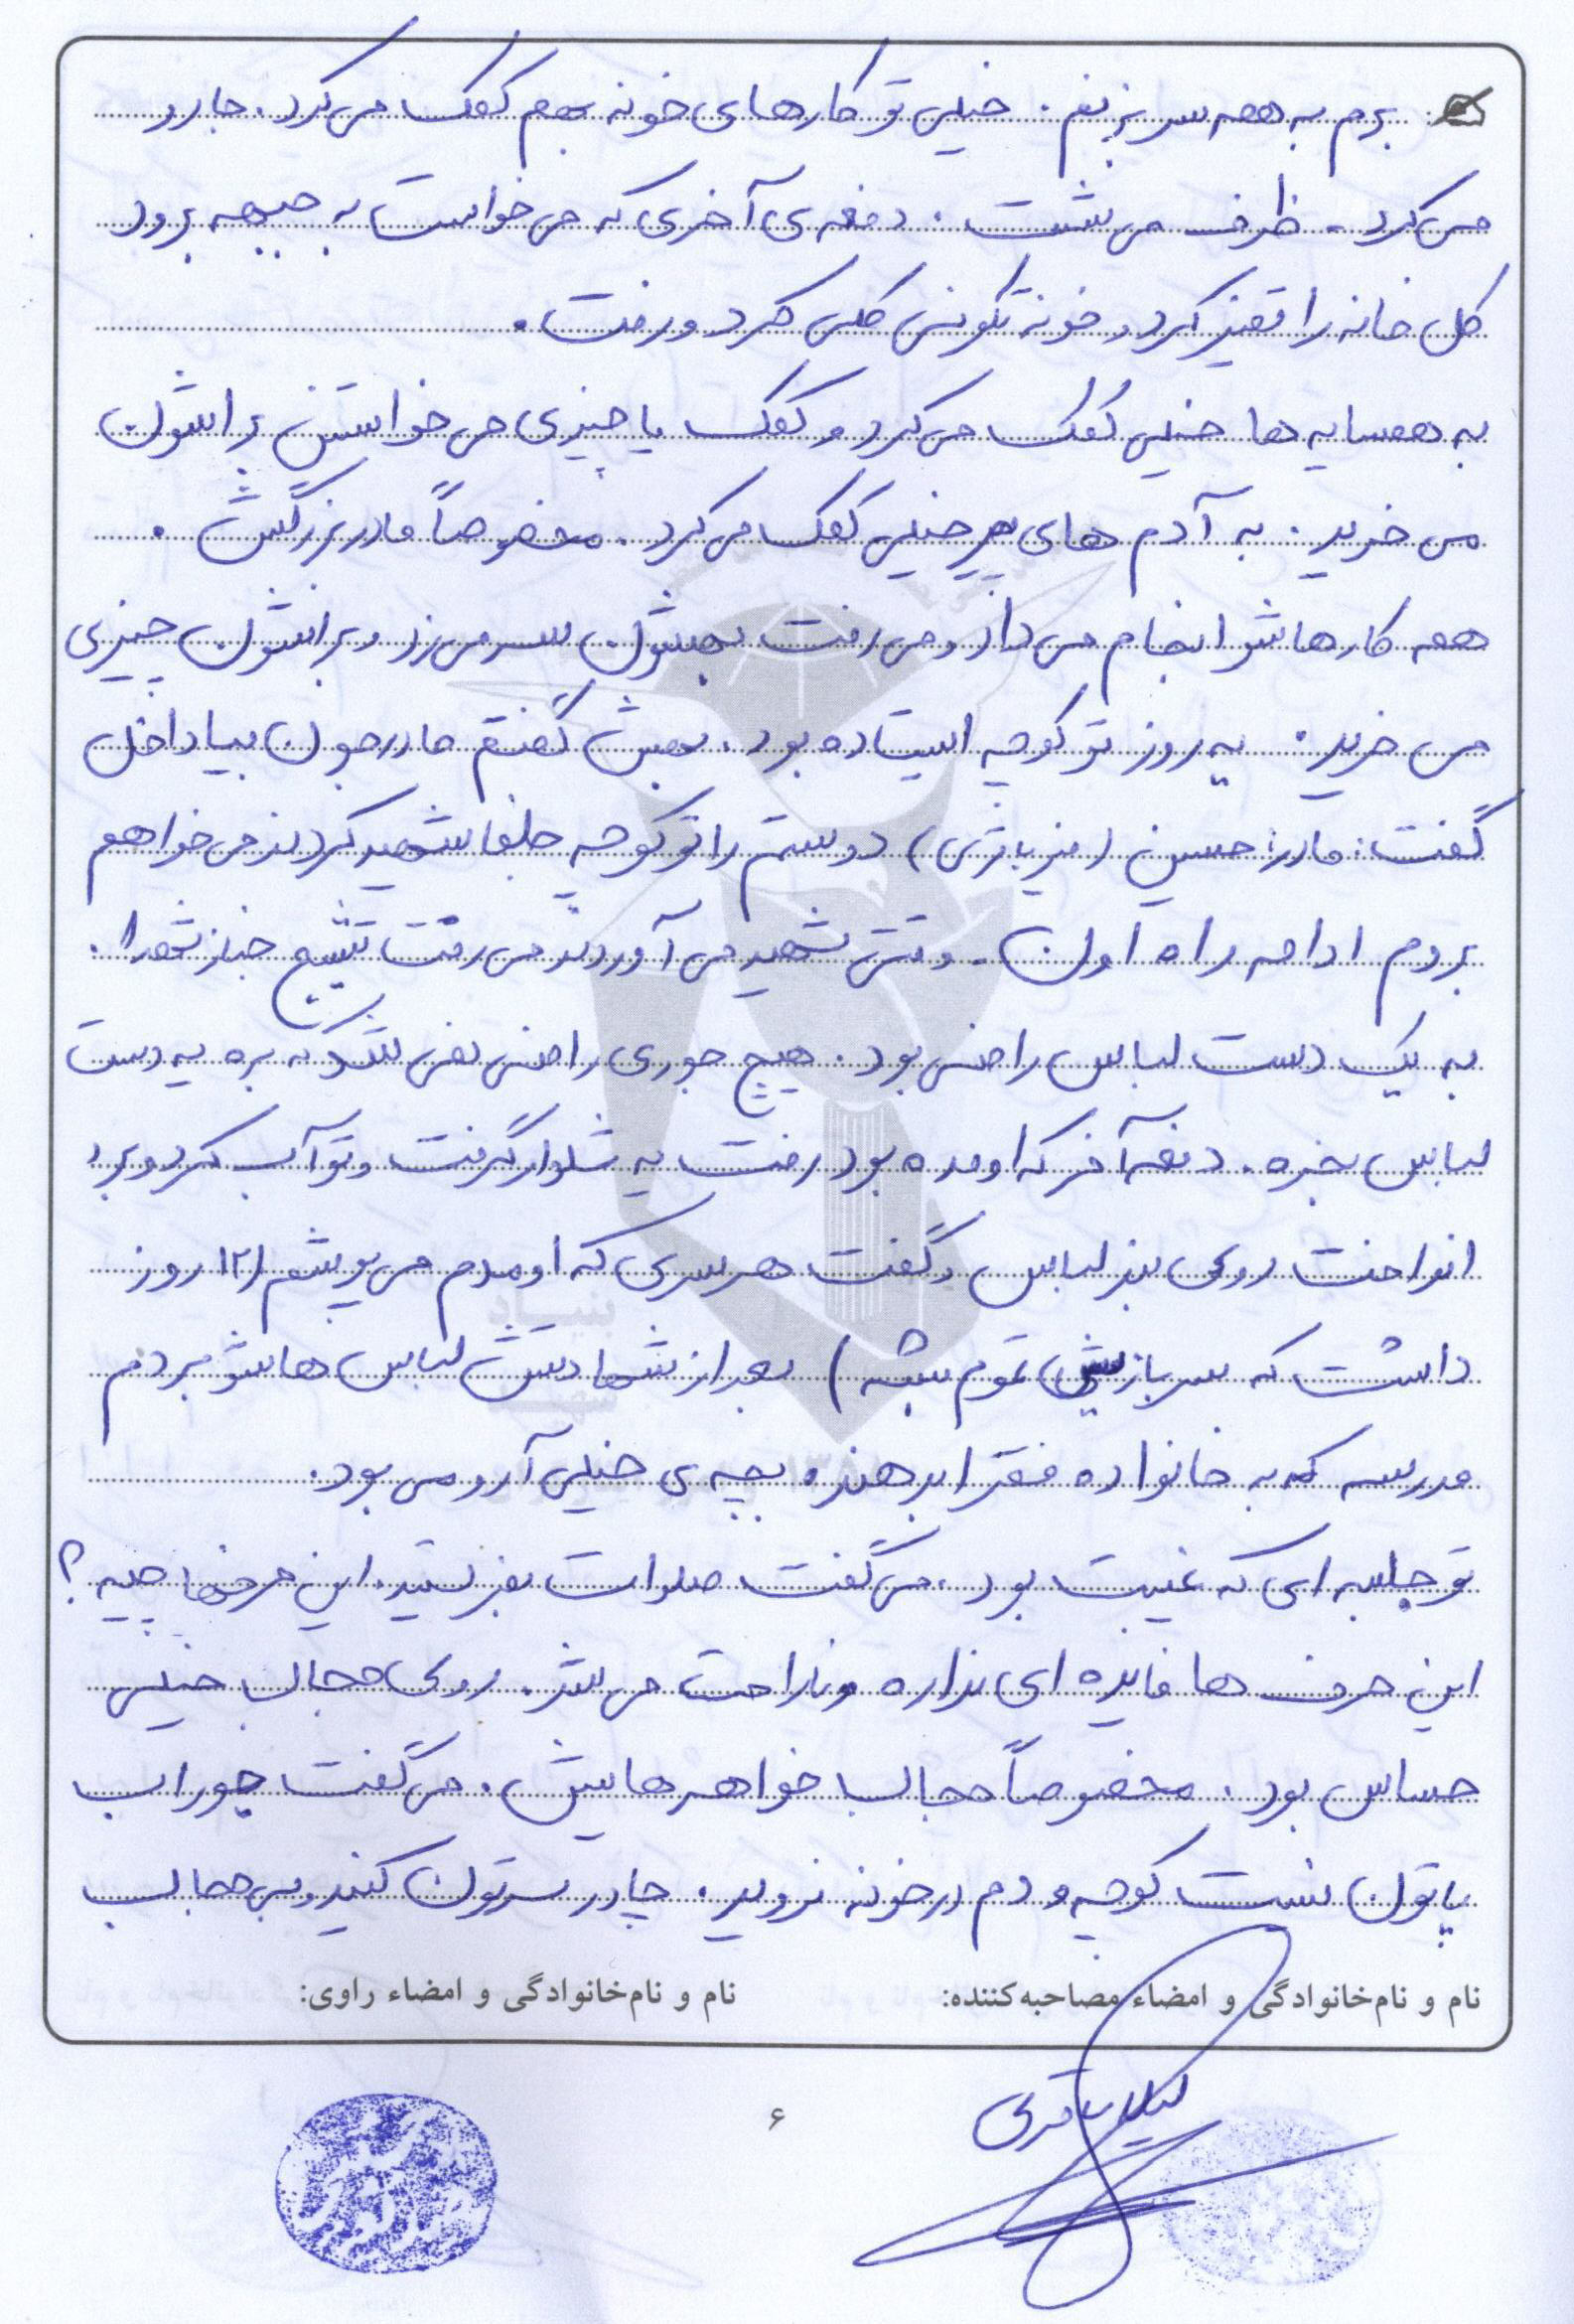 برم به همه سر بزنم. خیلی تو کارهای خونه بهم کمک می‌کرد. جارو
می‌کرد. ظرف می‌شست. دفعه‌ی آخری که می‌خواست به جبهه برود
کل خانه را تمیز کرد و خونه تکونی کلی کرد و رفت.
به همسایه‌ها خیلی کمک می‌کرد و کمک یا چیزی می‌خواستن براشون
می‌خرید. به آدم‌های پیر خیلی کمک می‌کرد. مخصوصاً مادربزرگش.
همه کارهاشو انجام می‌داد و می‌رفت بهشون سر می‌زد و براشون چیزی
می‌خرید. یه روز تو کوچه ایستاده بود. بهش گفتم مادرجون بیا داخل
گفت: مادر: حسین (منیریاتری) دوستم را تو کوچه حلفا شهید کردند می‌خواهم
بروم ادامه راه اون. وقتی شهید می‌آوردند می‌رفت تشییع جنازه شهدا.
به یک دست لباس راضی بود. هیچ جوری راضی نمی‌شد که بره یه دست
لباس بخره. دفعه آخر که اومده بود رفت یه شلوار گرفت و تو آب کرد و برد
انداخت روی بند لباس و گفت هر سری که اومدم می‌پوشم (۱۲ روز
داشت که سربازیش تموم بشه) بعد از شهادتش لباس‌هاشو بردم
مدرسه که به خانواده فقرا بدهند، بچه‌ی خیلی آرومی بود.
تو جلسه‌ای که غیبت بود، می‌گفت صلوات بفرستید. این حرفها چیه؟
این حرف‌ها فایده‌ای نداره و ناراحت می‌شد. روی حجاب خیلی
حساس بود. مخصوصاً حجاب خواهرهایش. می‌گفت جوراب
پاتون نیست کوچه و دم در خونه نروید. چادر سرتون کنید و بی حجاب
نام و نام‌خانوادگی و امضاء مصاحبه‌کننده: نام و نام‌خانوادگی و امضاء راوی:
۶